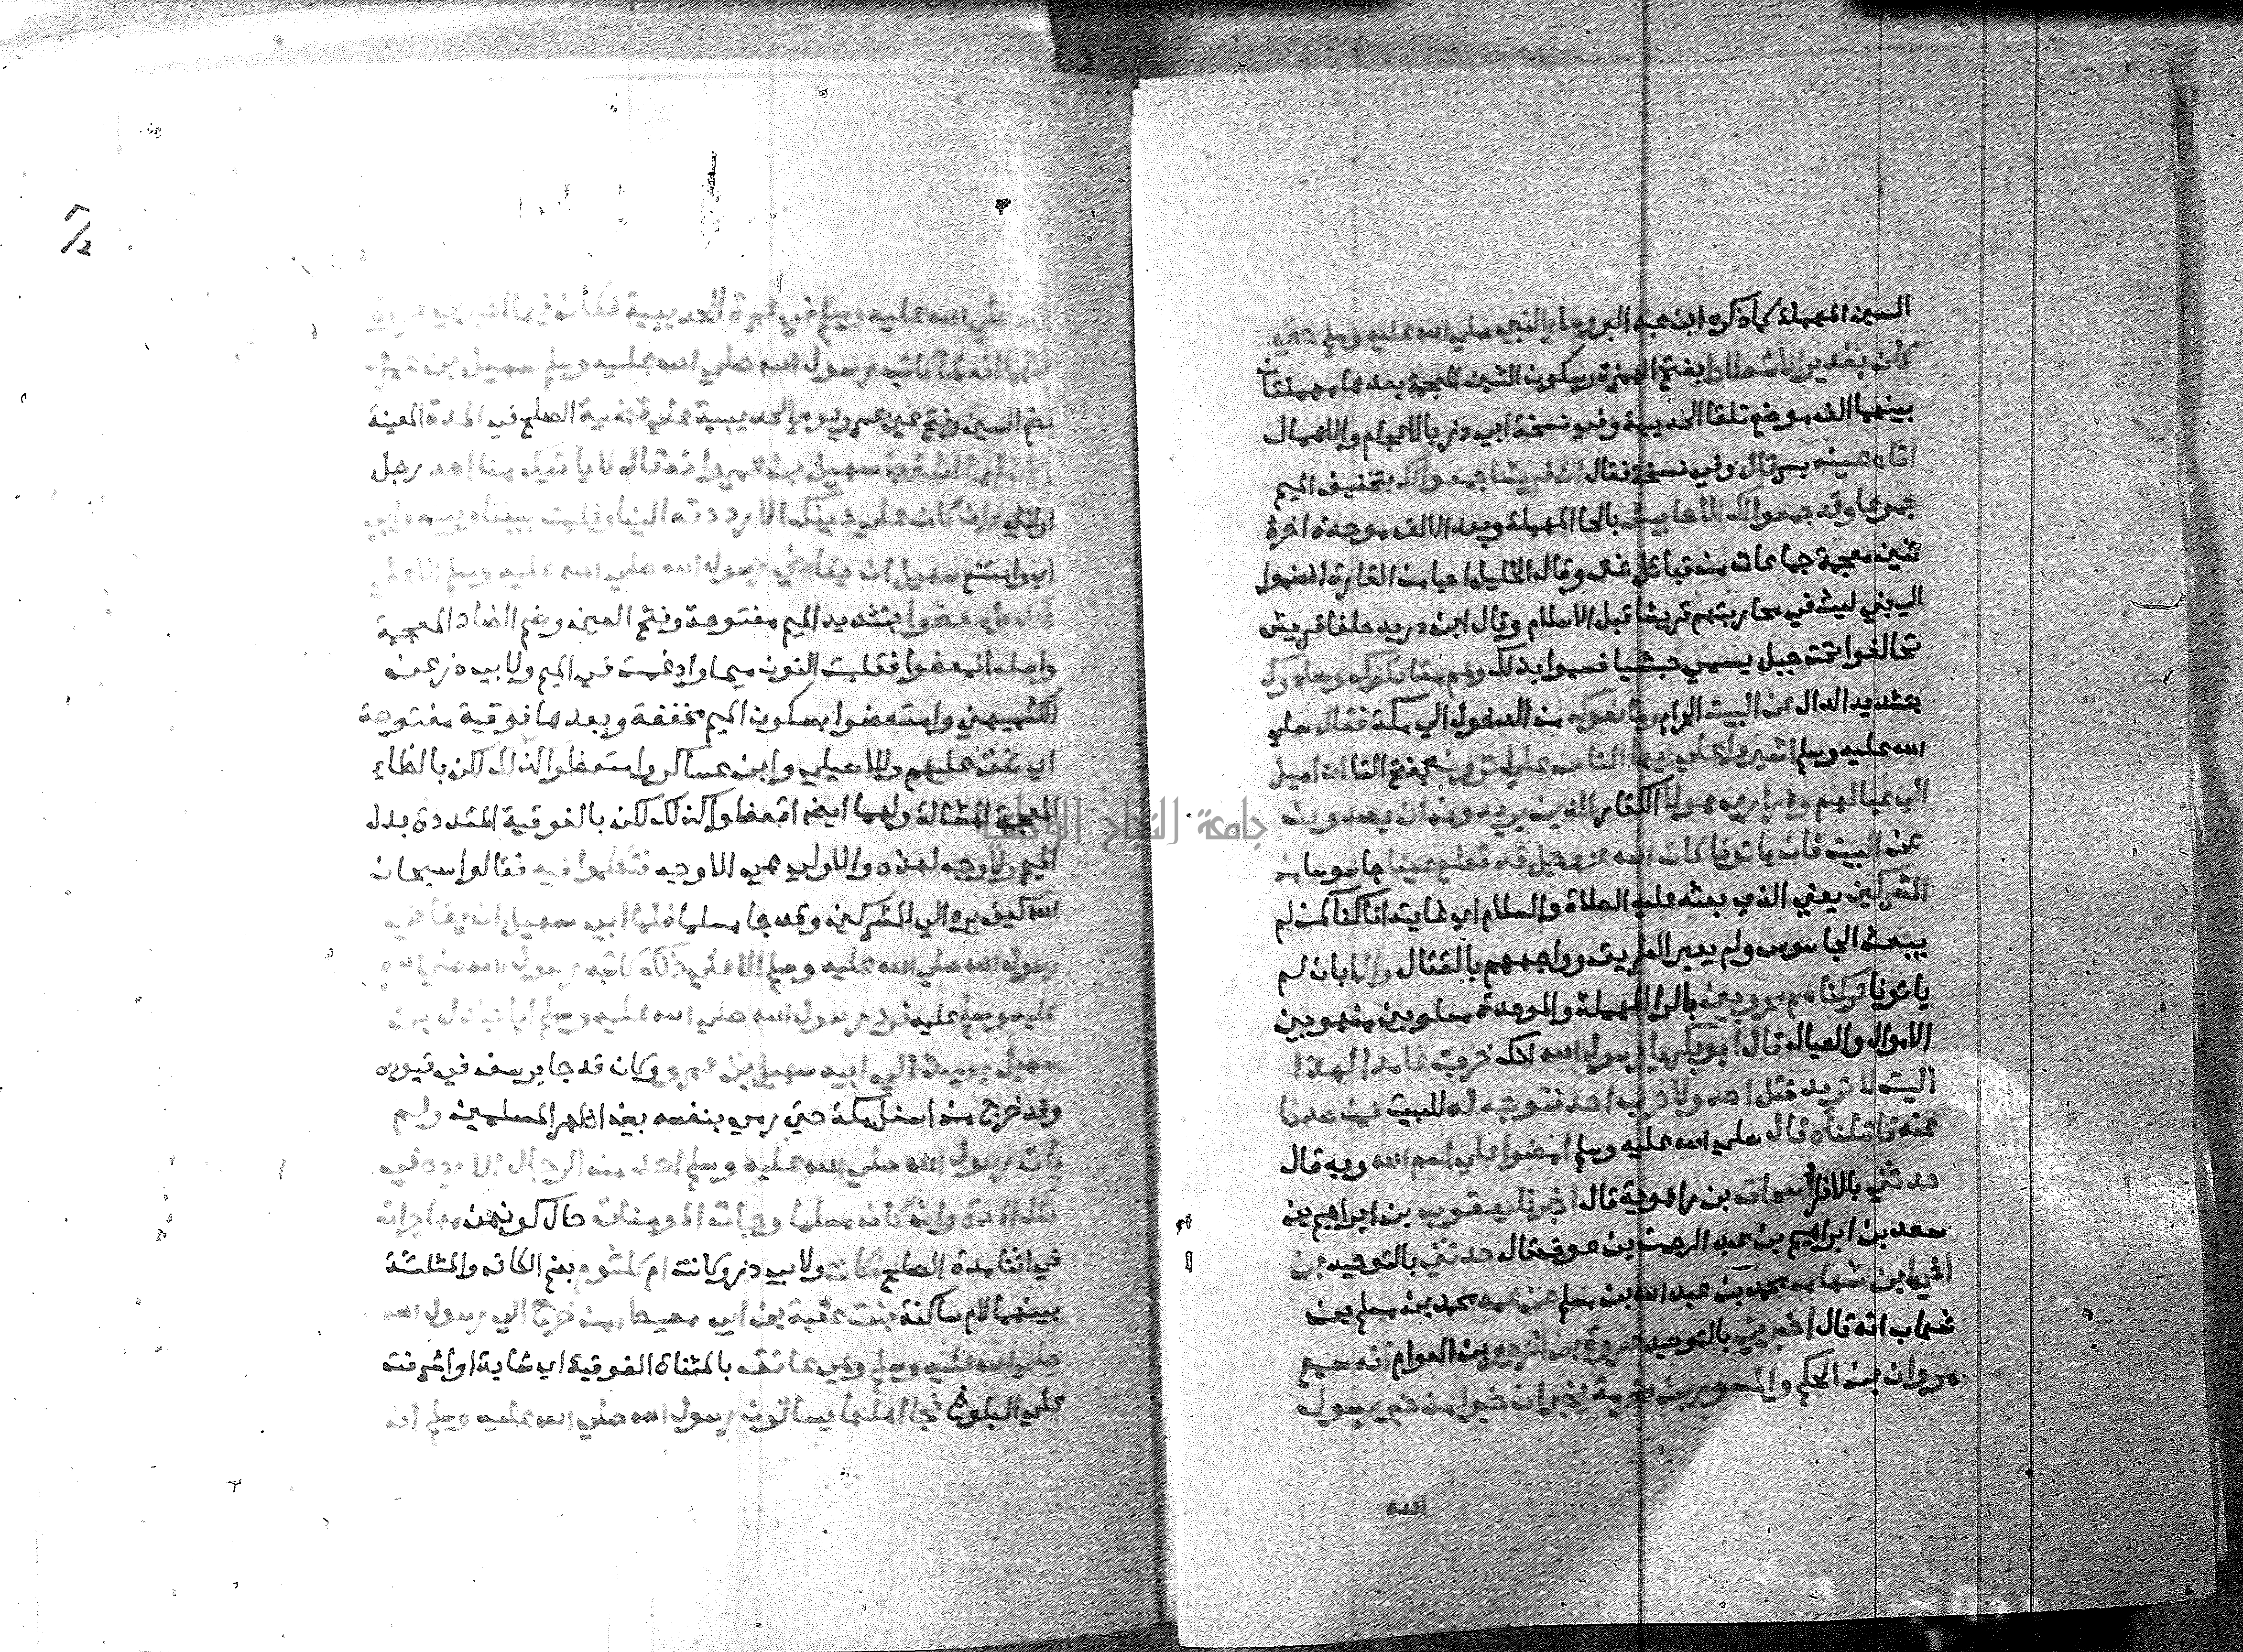 السين المهملة كما ذكره ابن عبد البر وسار النبي صلي الله عليه وسلم حتي
كان بغدير الاشطاط بفتح الهمزة وسكون الشين المعجمة بعدها مهملتان
بينهما الف موضع تلقا الحديبية وفي نسخة ابي ذر بالاعجام والاهمال
اتاه عينه بسر قال وفي نسخة فقال ان قريشا جمعوا لك بتخفيف الميم
جموعا وقد جمعوا لك الاحابيش بالحا المهملة وبعد الالف موحدة اخرة
شين معجمة جماعات من قبائل شتى وقال الخليل احيا من القارة انضموا
الي بني ليث في محاربتهم قريشا قبل الاسلام وقال ابن دريد حلفا قريش
تحالفوا تحت جبل يسمي حبشيا فسموا بذلك وهم مقاتلوك وصادوك
بتشديد الدال عن البيت الحرام ومانعوك من الدخول الي مكة فقال صلي
الله عليه وسلم اشيروا علي ايها الناس علي اترون بفتح التا ان اميل
الي عيالهم وذراري هولا الكفار الذين يريدون ان يصدونا
عن البيت فان ياتونا كان الله عز وجل قد قطع عينا جاسوسا من
المشركين يعني الذي بعثه عليه الصلاة والسلام اي غايته انا كنا كمن لم
يبعث الجاسوس ولم يعبر الطريق وواجههم بالقتال والا بان لم
ياتونا تركناهم محروبين بالرا المهملة والموحدة مسلوبين منهوبين
الاموال والعيال قال ابو بكر يا رسول الله انك خرجت عامدا لهذا
البيت لا تريد قتل احد ولا حرب احد فتوجه له للبيت فمن صدنا
عنه قاتلناه قال صلي الله عليه وسلم امضوا علي اسم الله وبه قال
حدثني بالافراد اسحاق بن راهوية قال اخبرنا يعقوب بن ابراهيم بن
سعد بن ابراهيم بن عبد الرحمن بن عوف قال حدثني بالتوحيد بن
اخي ابن شهاب محمد بن عبد الله بن مسلم عن عمه محمد بن مسلم بن
شهاب انه قال اخبرني بالتوحيد عروة بن الزبير بن العوام انه سمع
مروان بن الحكم والمسور بن مخرمة يخبران خبرا من خبر رسول
الله
صلي الله عليه وسلم في عمرة الحديبية فكان فيما اخبرني عروة
عنهما انه لما كاتب رسول الله صلي الله عليه وسلم سهيل بن عمرو
بضم السين وفتح عين عمرو يوم الحديبية علي قضية الصلح في المدة المعينة
وكان فيما اشترط سهيل بن عمرو انه قال لا ياتيك منا احد رجل
او انثي وان كان علي دينك الا رددته الينا وخليت بيننا وبينه وابي
اي وامتنع سهيل ان يقاضي رسول الله صلي الله عليه وسلم الا علي
ذلك وامعضوا بتشديد الميم مفتوحة وفتح العين وضم الضاد المعجمة
واصله انمعضوا فقلبت النون ميما وادغمت في الميم ولابي ذر عن
الكشميهني وامتعضوا بسكون الميم مخففة وبعدها فوقية مفتوحة
اي شق عليهم وللاصيلي وابن عساكر وامتعظوا كذلك لكن بالظاء
المعجمة المشالة ولهما ايضا اتمعضوا كذلك لكن بالفوقية المشددة بدل
الميم ولا وجه لهذه والاولي هي الاوجه فتكلموا فيه فقالوا سبحان
الله كيف يرد الي المشركين وقد جا مسلما فلما ابي سهيل ان يقاضي
رسول الله صلي الله عليه وسلم الا علي ذلك كاتبه رسول الله صلي الله
عليه وسلم عليه فرد رسول الله صلي الله عليه وسلم ابا جندل بن
سهيل يومئذ الي ابيه سهيل بن عمرو وكان قد جا يرسف في قيوده
وقد خرج من اسفل مكة حتي رمي بنفسه بين اظهر المسلمين ولم
يات رسول الله صلي الله عليه وسلم احد من الرجال الا رده في
تلك المدة وان كان مسلما وجات المومنات حال كونهن مهاجرات
في اثنا مدة الصلح فكانت ولابي ذر وكانت ام كلثوم بضم الكاف والمثلثة
بينهما لام ساكنة بنت عقبة بن ابي معيط ممن خرج الي رسول الله
صلي الله عليه وسلم وهي عاتق بالمثناة الفوقية اي شابة او اشرفت
علي البلوغ فجا اهلها يسالون رسول الله صلي الله عليه وسلم ان
جامعة النجاح الوطنية